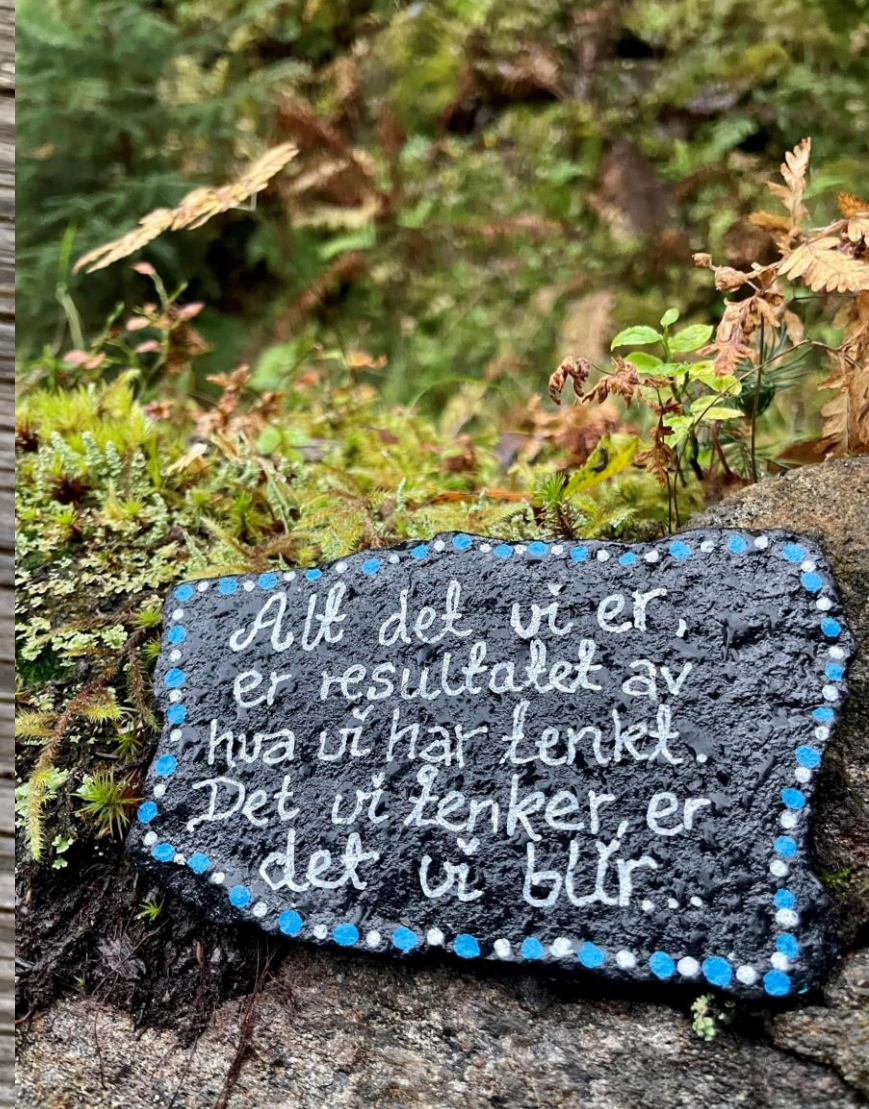 Alt det vi er,
er resultatet av
hva vi har tenkt.
Det vi tenker, er
det vi blir...